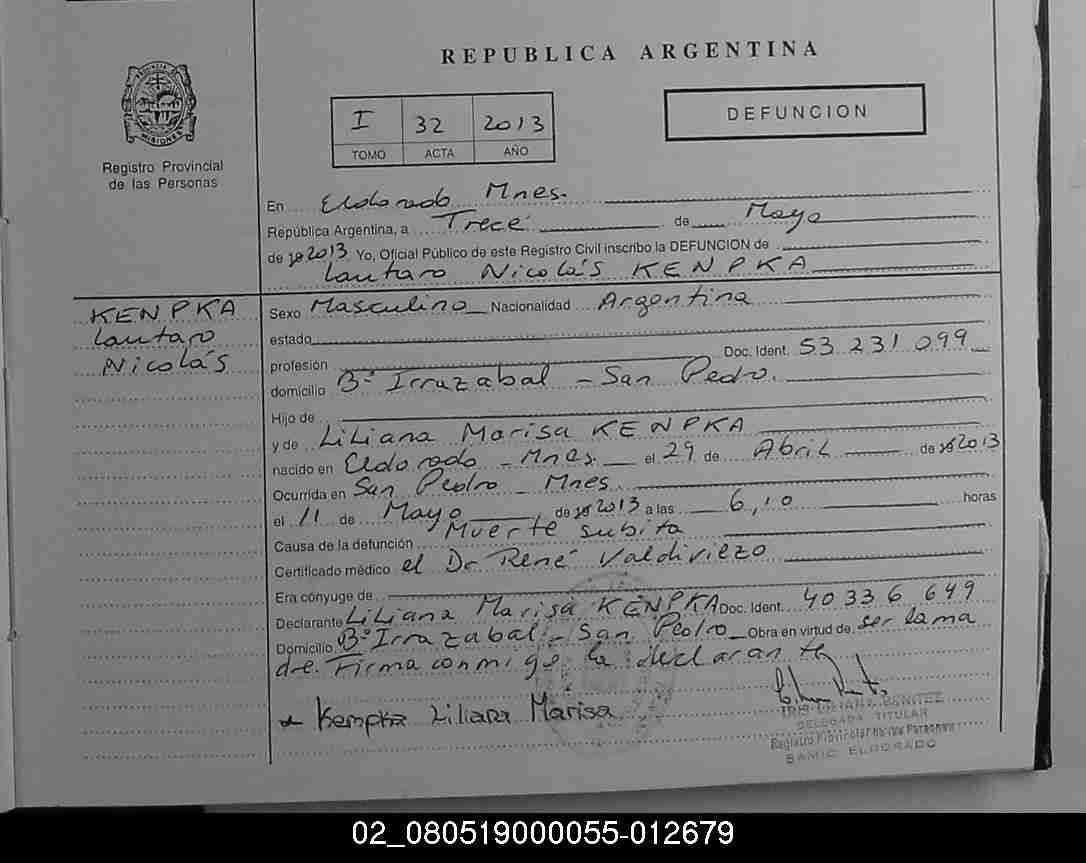 REPUBLICA ARGENTINA
PROVINCIA DE MISIONES
Registro Provincial
de las Personas
I 32 2013
TOMO ACTA AÑO
DEFUNCION
En Eldorado Mnes.
República Argentina, a Trece de Mayo
de 2013 Yo, Oficial Público de este Registro Civil inscribo la DEFUNCION de
Lautaro Nicolás KENPKA
KENPKA
Lautaro
Nicolás
Sexo Masculino Nacionalidad Argentina
estado
profesión Doc. Ident. 53 231 099
domicilio Bº Irrazabal - San Pedro.
Hijo de
y de Liliana Marisa KENPKA
nacido en Eldorado - Mnes. el 29 de Abril de 2013
Ocurrida en San Pedro - Mnes
el 11 de Mayo de 2013 a las 6,10 horas
Causa de la defunción Muerte subita
Certificado médico el Dr René Valdiviezo
Era cónyuge de
Declarante Liliana Marisa KENPKA Doc. Ident. 40 336 649
Domicilio Bº Irrazabal - San Pedro Obra en virtud de ser la ma
dre. Firma conmigo la declarante
Kempka Liliana Marisa
IRIS LILIANA BENITEZ
DELEGADA TITULAR
Registro Provincial de las Personas
SAMIC ELDORADO
02_080519000055-012679